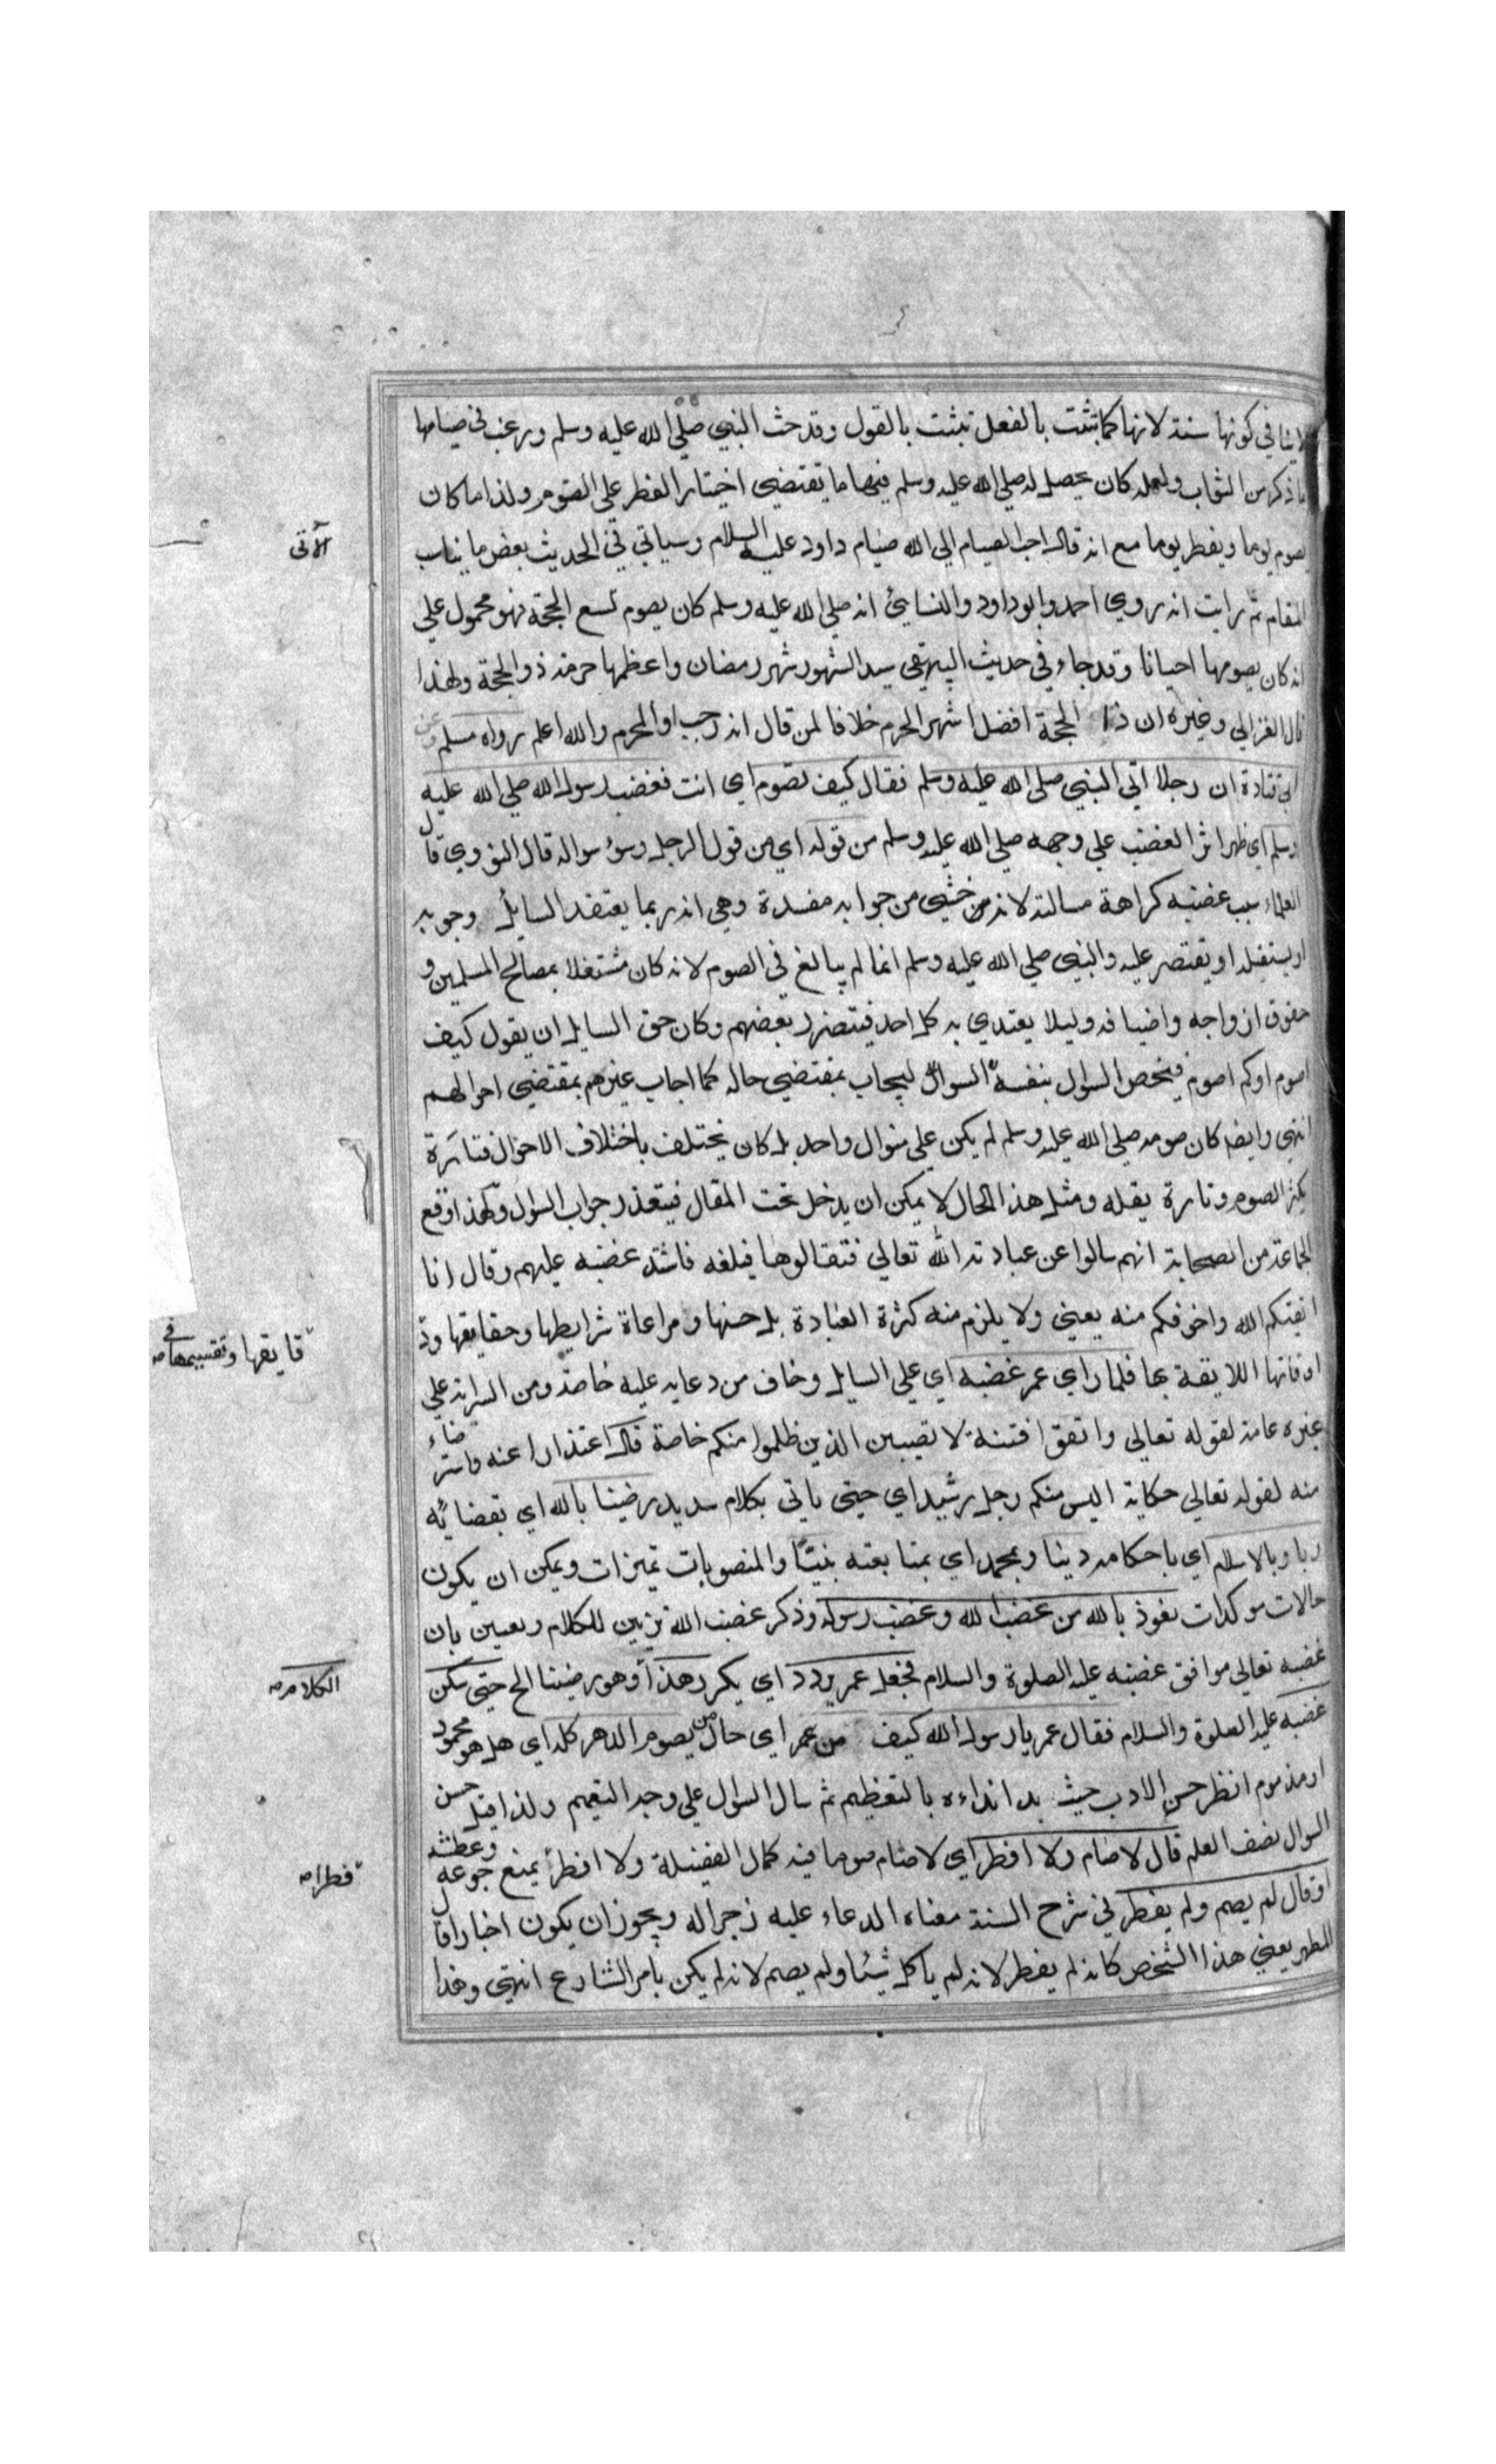 لاينافي كونها سنة لانها كما تثبت بالفعل تبثت بالقول وقد حث النبي صلي الله عليه وسلم ورغب في صيامها
بما ذكر من الثواب ولعله كان يحصل له صلي الله عليه وسلم فيها ما يقتضي اختيار الفطر علي الصوم ولذا ما كان
يصوم يوما ويفطر يوما مع انه قال احب الصيام الي الله صيام داود عليه السلام وسياتي في الحديث بعض ما يناسب
الآتي
المقام ثم رايت انه روي احمد وابو داود والنسائي انه صلي الله عليه وسلم كان يصوم تسع الحجة فهو محمول علي
انه كان يصومها احيانا وقد جاء في حديث البيهقي سيد الشهور شهر رمضان واعظمها حرمة ذو الحجة ولهذا
قال الغزالي وغيره ان ذا الحجة افضل اشهر الحرم خلافا لمن قال انه رجب او المحرم والله اعلم رواه مسلم وعن
ابي قتادة ان رجلا اتي النبي صلي الله عليه وسلم فقال كيف تصوم اي انت فغضب رسول الله صلي الله عليه
وسلم اي ظهر اثر الغضب علي وجهه صلي الله عليه وسلم من قوله اي من قول الرجل وسوء سواله قال النووي قال
العلماء سبب غضبه كراهة مسالته لانه من خشي من جوابه مفسدة وهي انه ربما يعتقد السايل وجوبه
او يستقله او يقتصر عليه والنبي صلي الله عليه وسلم انما لم يبالغ في الصوم لانه كان مشتغلا بمصالح المسلمين و
حقوق ازواجه واضيافه وليلا يقتدي به كل احد فيتضرر بعضهم وكان حق السايل ان يقول كيف
اصوم او كم اصوم فيخص السوال بنفسه السوال ليجاب بمقتضي حاله كما اجاب غيرهم بمقتضي احوالهم
انتهي وايضا كان صومه صلي الله عليه وسلم لم يكن علي منوال واحد بل كان يختلف باختلاف الاحوال فتارة
يكثر الصوم وتارة يقله ومثل هذا الحال لا يمكن ان يدخل تحت المقال فيتعذر جواب السوال ولهذا وقع
لجماعة من الصحابة انهم سالوا عن عبادته الله تعالي فتقالوها فبلغه فاشتد غضبه عليهم وقال انا
اتقيكم الله واخوفكم منه يعني ولا يلزم منه كثرة العبادة بل حسنها ومراعاة شرايطها وحقايقها ود
قايقها وتقسيمها في
اوقاتها اللايقة بها فلما راي عمر غضبه اي علي السايل وخاف من دعايه عليه خاصة ومن السراية علي
غيره عامة لقوله تعالي واتقوا فتنة لا تصيبن الذين ظلموا منكم خاصة قال اعتذارا عنه واسترضاء
منه لقوله تعالي حكاية اليس منكم رجل رشيد اي حتي ياتي بكلام سديد رضينا بالله اي بقضائه
ربا وبالاسلام اي باحكامه دينا وبمحمد اي بمتابعته نبيًّا والمنصوبات تميزات ويمكن ان يكون
حالات موكدات نعوذ بالله من غضب الله وغضب رسوله وذكر غضب الله تزيين للكلام وتعيين بان
غضبه تعالي موافق غضبه عليه الصلوة والسلام فجعل عمر يردد اي يكرر هذا وهو رضينا الخ حتي سكن
الكلام
غضبه عليه الصلوة والسلام فقال عمر يا رسول الله كيف من عمر اي حال من يصوم الدهر كله اي هل هو محمود
او مذموم انظر حسن الادب حيث بدا نداءه بالتعظيم ثم سال السوال علي وجه التعميم ولذا قيل حسن
السوال نصف العلم قال لا صام ولا افطر اي لا صام صوما فيه كمال الفضيلة ولا افطر يمنع جوعه وعطشه
فطرا
او قال لم يصم ولم يفطر في شرح السنة معناه الدعاء عليه زجرا له ويجوز ان يكون اخبارا قال
المطهر يعني هذا الشخص كانه لم يفطر لانه لم ياكل شيئا ولم يصم لانه لم يكن بامر الشارع انتهي وهذا